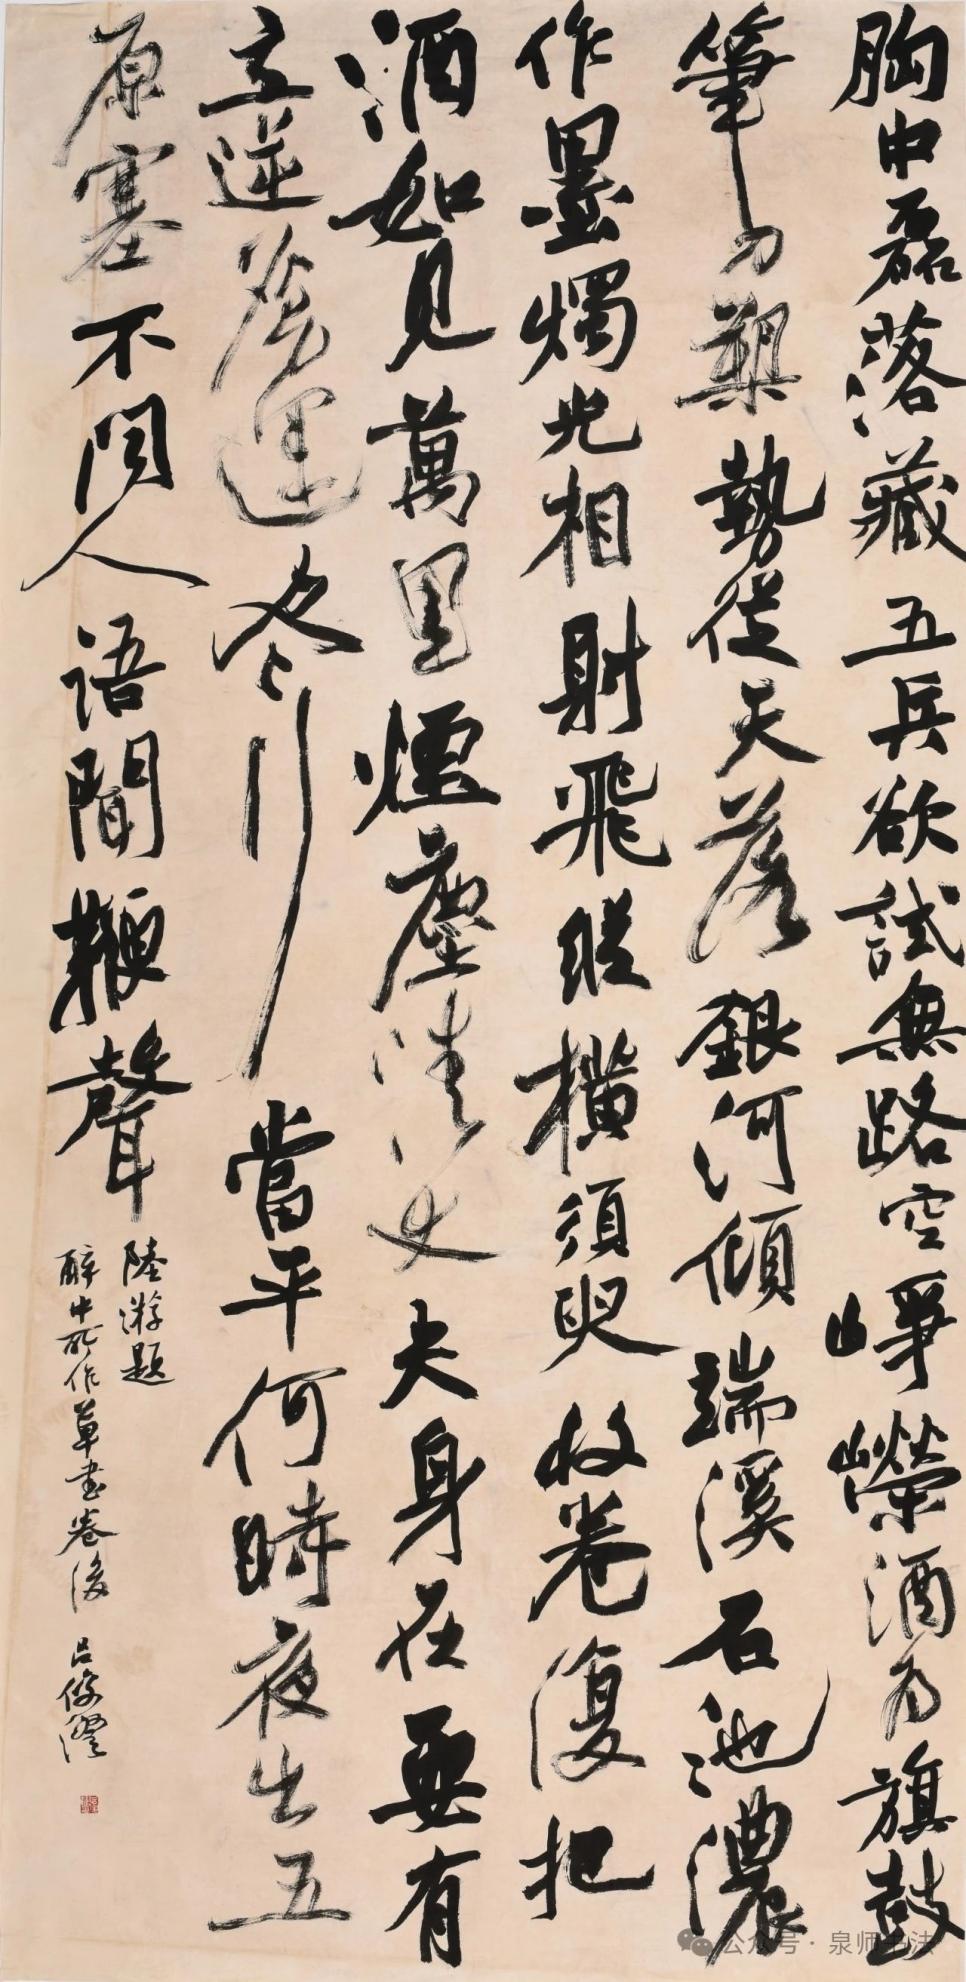 胸中磊落藏五兵欲試無路空崢嶸酒为旗鼓
筆刀槊勢從天落銀河傾端溪石池濃
作墨燭光相射飛縱橫須臾收卷復把
酒如見萬里煙塵清丈夫身在要有
立逆虜運盡行當平何時夜出五
原塞不聞人語聞鞭聲
陸游題
醉中所作草書卷後 吕俊澄
公众号·泉师书法